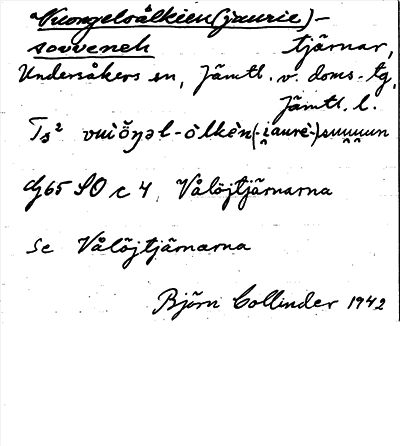 Vuongelsålkien(jaurie)-
sovveneh tjärnar,
Undersåkers sn, Jämtl. v. doms.-tg,
Jämtl. l.
Ts² 
Gj65 SO c 4, Vålöjtjärnarna
Se Vålöjtjärnarna
Björn Collinder 1942